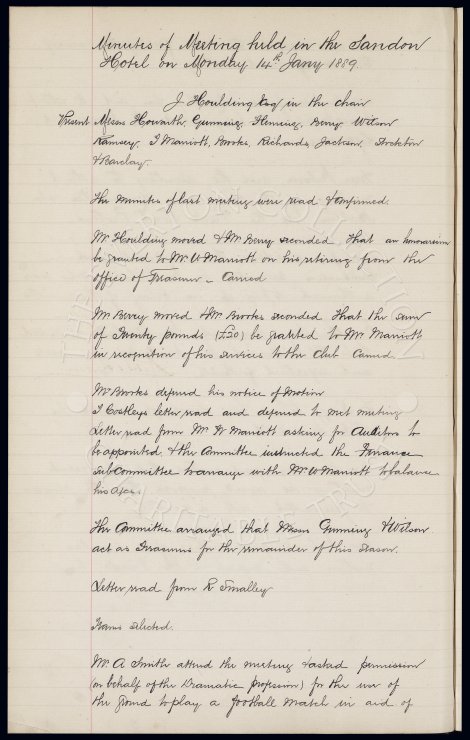 Minutes of Meeting held in the Sandon
Hotel on Monday 14th Jany 1889.
J Houlding Esq in the chair
Present Messrs Howarth, Gunning, Fleming, Berry Wilson
Ramsey, T Marriott, Brooks, Richards, Jackson, Stockton
& Barclay.
The minutes of last meeting were read & confirmed.
Mr Houlding moved & Mr Berry seconded, That an honorarium
be granted to Mr W Marriott on his retiring from the
office of Treasurer – Carried
Mr Berry moved & Mr Brooks seconded That the sum
of Twenty pounds (£20) be granted to Mr Marriott
in recognition of his services to the Club Carried.
Mr Brooks deferred his notice of motion
T Costleys letter read and deferred to next meeting
Letter read from Mr W Marriott asking for Auditors to
be appointed & the Committee instructed the Finance
Sub Committee to arrange with Mr W Marriott to balance
his
The Committee arranged that Messrs Gunning & Wilson
act as Treasurers for the remainder of this season.
Letter read from R Smalley
Teams selected.
Mr A Smith attend the meeting & asked permission
(on behalf of the Dramatic profession) for the use of
the ground to play a football match in aid of